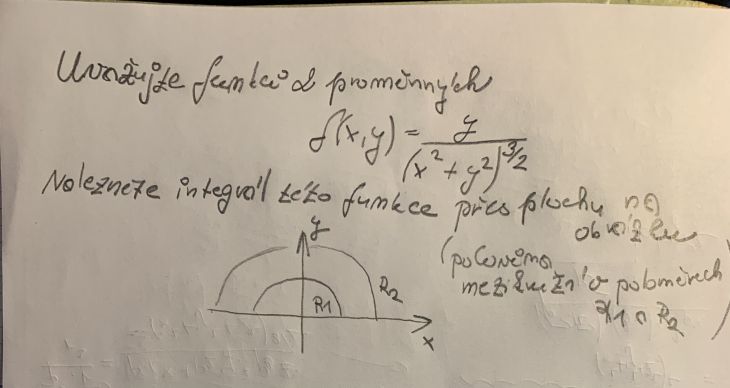 Uvažujte funkci 2 proměnných
f(x,y) = y / (x² + y²)^3/2
Nalezněte integrál této funkce přes plochu na
obrázku
(polovina
mezikruží o poloměrech
R1 a R2)
y
R1
R2
x